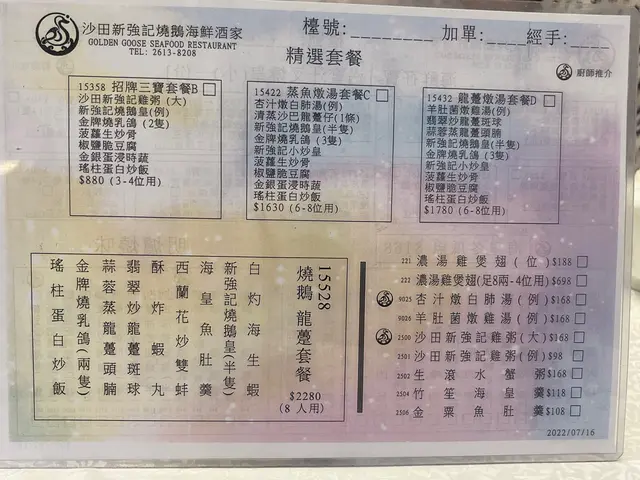 沙田新強記燒鵝海鮮酒家
GOLDEN GOOSE SEAFOOD RESTAURANT
TEL: 2613-8208
檯號:________ 加單:____ 經手:____
精選套餐
廚師推介
15358 招牌三寶套餐B
沙田新強記雞粥 (大)
新強記燒鵝皇(例)
金牌燒乳鴿 (2隻)
菠蘿生炒骨
椒鹽脆豆腐
金銀蛋浸時蔬
瑤柱蛋白炒飯
$880 (3-4位用)
15422 蒸魚燉湯套餐C
杏汁燉白肺湯(例)
清蒸沙巴龍躉仔(1條)
新強記燒鵝皇(半隻)
金牌燒乳鴿 (3隻)
新強記小炒皇
菠蘿生炒骨
椒鹽脆豆腐
金銀蛋浸時蔬
瑤柱蛋白炒飯
$1630 (6-8位用)
15432 龍躉燉湯套餐D
羊肚菌燉雞湯(例)
翡翠炒龍躉斑球
蒜蓉蒸龍躉頭腩
新強記燒鵝皇(半隻)
金牌燒乳鴿 (3隻)
新強記小炒皇
菠蘿生炒骨
椒鹽脆豆腐
瑤柱蛋白炒飯
$1780 (6-8位用)
15528
燒鵝 龍躉套餐
$2280
(8 人用)
白灼海生蝦
新強記燒鵝皇(半隻)
海皇魚肚羹
西蘭花炒雙蚌
酥炸蝦丸
翡翠炒龍躉斑球
蒜蓉蒸龍躉頭腩
金牌燒乳鴿(兩隻)
瑤柱蛋白炒飯
221 濃湯雞煲翅 (位) $188
222 濃湯雞煲翅(足8兩-4位用) $698
9025 杏汁燉白肺湯(例) $168
9026 羊肚菌燉雞湯(例) $168
2500 沙田新強記雞粥(大) $168
2501 沙田新強記雞粥(例) $98
2502 生滾水蟹粥 $168
2504 竹笙海皇羹 $118
2506 金粟魚肚羹 $108
2022/07/16